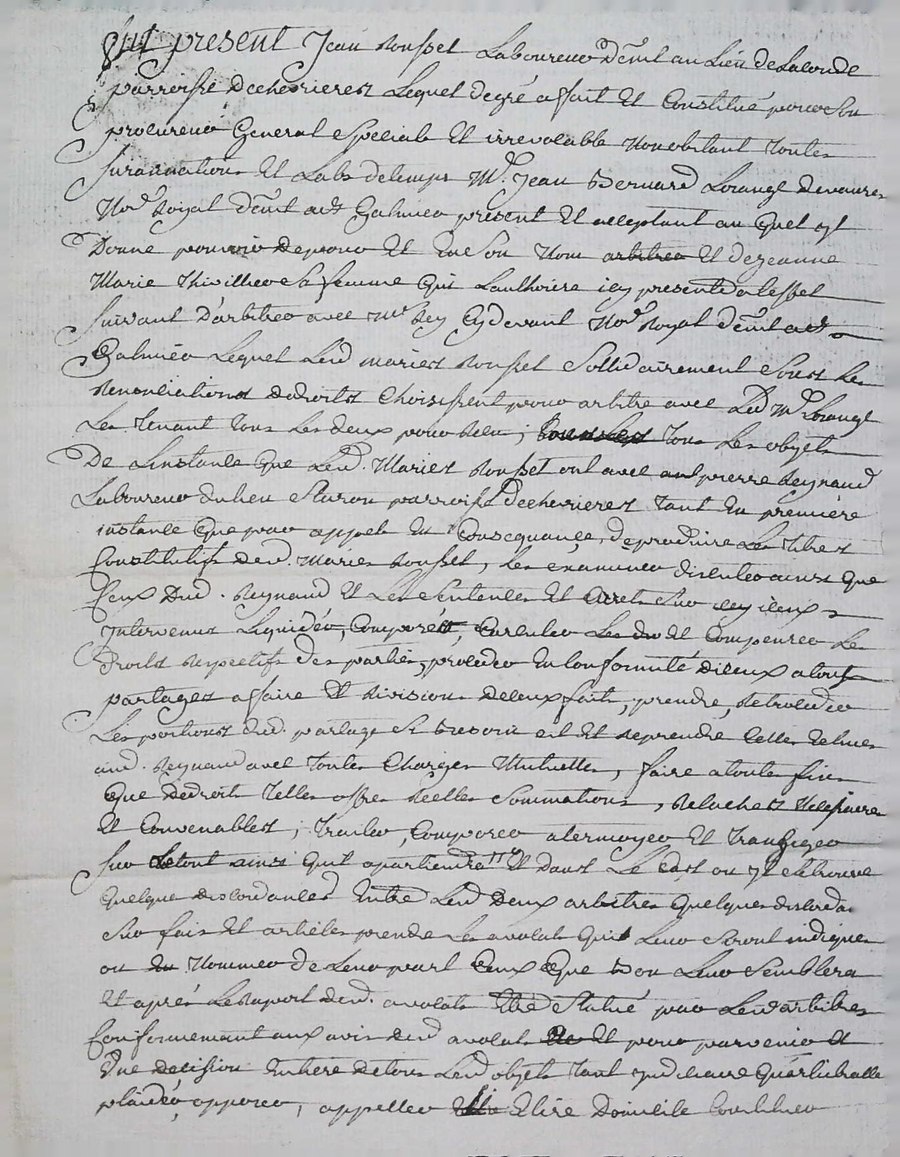 fut présent Jean Rousset Laboureur demt au Lieu de Laronde
parroisse dechevrieres Lequel degré a fait Et Constitué pour Son
procureur General Special Et irrevocable Nonobstant toutes
Surannations Et Labs detemps Me. Jean Bernard Lorange devaures
Nore. Royal demt a St Galmier présent Et acceptant au quel yl
Donne pouvoir de pour Et En Son Nom arbitrer Et dejeanne
Marie Thivillier Sa femme qui Lauthorise icy presente a leffet
Suivant d'arbitrer avec Me Rey Cydevant Nore Royal demt a St
Galmier Lequel Lesd mariés Rousset Sollidairement Sous Les
Renonciations dedroits Choisissent pour arbitre avec Led Me Lorange
Les tenant tous Les deux pour tels; tous Les objets
De Linstance que Lesd. Mariés Rousset ont avec pierre Reynaud
Laboureur du lieu parroisse dechevrieres tant En premiere
instance que par appel Et Consequance, de produire Les titres
Constitutifs desd. Mariés Rousset, Les examiner discuter ainsi que
Ceux Dud. Reynaud Et Les Sentences Et arrets Sur iceux
intervenus Liquider, Composer, Calculer Les Et Compenser Les
Droits Respectifs des parties, proceder En Conformité diceux a tous
partages a faire Et division deceux faits, prendre, Retroceder
Les portions dud. partage Si Besoin est Et Reprendre Celles
aud. Reynaud avec toutes Charges Mutuelles, faire a toutes fins
Que dedroit telles offres Réelles Sommations, Relaches Necessaires
Et Convenables, traiter, Composer atermoyer Et transiger
Sur Letout ainsi quil apartiendra Et dans Le Cas ou yl Setrouve
quelque discordances Entre Lesd Deux arbitres quelques
Sur fais Et articles prendre Les avocats qui Leur Seront indiques
ou Nommer de Leur part Ceux Que Bon Leur Semblera
Et après Le Raport desd. avocats Etre Statué par Lesd arbitres
Conformement aux avis desd avocats Et pour parvenir a
Une decision Entiere detous Lesd objets tant
plaider, opposer, appeller Elire Domicile Constituer